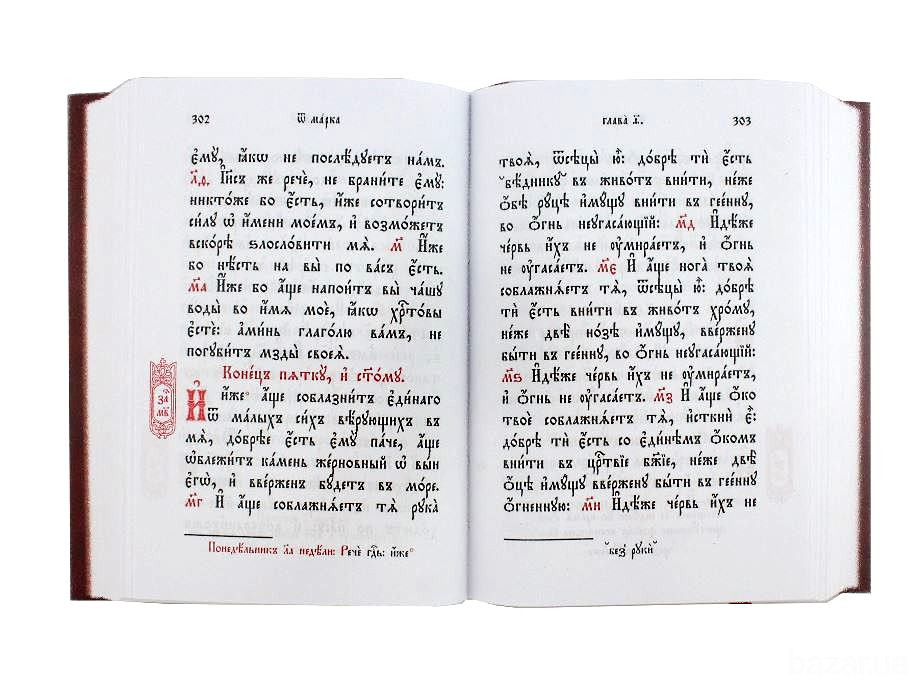 302
Ѿ ма́рка
є҆мꙋ̀, ꙗ҆́кѡ не послѣ́дꙋетъ на́мъ.
л҃ѳ. І҆и҃съ же речѐ, не брани́те є҆мꙋ̀:
никто́же бо є҆́сть, и҆́же сотвори́тъ
си́лꙋ ѡ҆ и҆́мени мое́мъ, и҆ возмо́жетъ
вско́рѣ ѕлосло́вити мѧ̀. м҃ И҆́же
бо нѣ́сть на вы̀ по ва́съ є҆́сть.
м҃а И҆́же бо а҆́ще напои́тъ вы̀ ча́шꙋ
воды̀ во и҆́мѧ моѐ, ꙗ҆́кѡ хрⷭ҇то́вы
є҆стѐ: а҆ми́нь глаго́лю ва́мъ, не
погꙋби́тъ мзды̀ своеѧ̀.
Коне́цъ пѧткꙋ̀, и҆ ст҃о́мꙋ.
И҆ и҆́же а҆́ще соблазни́тъ є҆ди́наго
Ѿ ма́лыхъ си́хъ вѣ́рꙋющихъ въ
мѧ̀, добрѣ́е є҆́сть є҆мꙋ̀ па́че, а҆́ще
ѡ҆блежи́тъ ка́мень же́рновный ѡ҆ вы́и
є҆гѡ̀, и҆ вве́рженъ бꙋ́детъ въ мо́ре.
м҃г И҆ а҆́ще соблажнѧ́етъ тѧ̀ рꙋка̀
за҃
м҃в
Понедѣ́льникъ л҃а недѣ́ли: Речѐ гдⷭ҇ь: и҆́же
глава̀ ѳ҃.
303
твоѧ̀, ѿсѣцы̀ ю҆̀: добрѣ́ ти є҆́сть
бѣ́дникꙋ въ живо́тъ вни́ти, не́же
ѻ҆́бѣ рꙋцѣ̀ и҆мꙋ́щꙋ вни́ти въ гее́ннꙋ,
во ѻ҆́гнь неꙋгаса́ющїй: м҃д И҆дѣ́же
че́рвь и҆́хъ не ᲂу҆мира́етъ, и҆ ѻ҆́гнь
не ᲂу҆гаса́етъ. м҃є И҆ а҆́ще нога̀ твоѧ̀
соблажнѧ́етъ тѧ̀, ѿсѣцы̀ ю҆̀: добрѣ́
ти є҆́сть вни́ти въ живо́тъ хро́мꙋ,
не́же двѣ̀ но́зѣ и҆мꙋ́щꙋ, вве́рженꙋ
бы́ти въ гее́ннꙋ, во ѻ҆́гнь неꙋгаса́ющїй:
м҃ѕ И҆дѣ́же че́рвь и҆́хъ не ᲂу҆мира́етъ,
и҆ ѻ҆́гнь не ᲂу҆гаса́етъ. м҃з И҆ а҆́ще ѻ҆́ко
твоѐ соблажнѧ́етъ тѧ̀, и҆сткнѝ є҆̀:
добрѣ́ ти є҆́сть со є҆ди́нѣмъ ѻ҆́комъ
вни́ти въ црⷭ҇твїе бж҃їе, не́же двѣ̀
ѻ҆́цѣ и҆мꙋ́щꙋ вве́рженꙋ бы́ти въ гее́ннꙋ
ѻ҆́гненнꙋю: м҃и И҆дѣ́же че́рвь и҆́хъ не
без̾ рꙋкѝ
bazar.ua